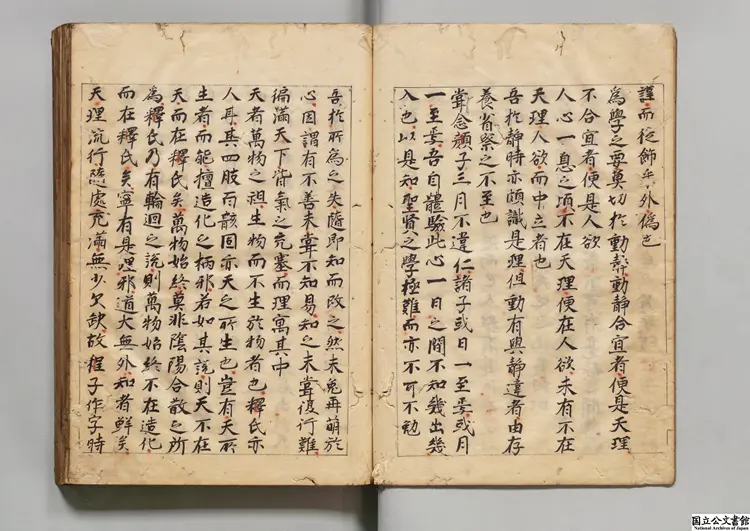 謹而從飾乎外偽也
為學之要莫切於動靜動靜合宜者便是天理
不合宜者便是人欲
人心一息之頃不在天理便在人欲未有不在
天理人欲而中立者也
吾於靜時亦頗識是理但動有與靜違者由存
養省察之不至也
嘗念顏子三月不違仁諸子或日一至焉或月
一至焉吾自體驗此心一日之間不知幾出幾
入也以是知聖賢之學極難而亦不可不勉
吾於所為之失隨即知而改之然未免再萌於
心因謂有不善未嘗不知易知之未嘗復行難
徧滿天下皆氣之充塞而理寓其中
天者萬物之祖生物而不生於物者也釋氏亦
人耳其四肢百骸固亦天之所生也豈有天所
生者而能擅造化之柄邪若如其說則天不在
天而在釋氏矣萬物始終莫非陰陽合散之所
為釋氏乃有輪迴之說則萬物始終不在造化
而在釋氏矣寧有是理邪道大無外知者鮮矣
天理流行隨處充滿無少欠缺故程子作字時
国立公文書館
National Archives of Japan